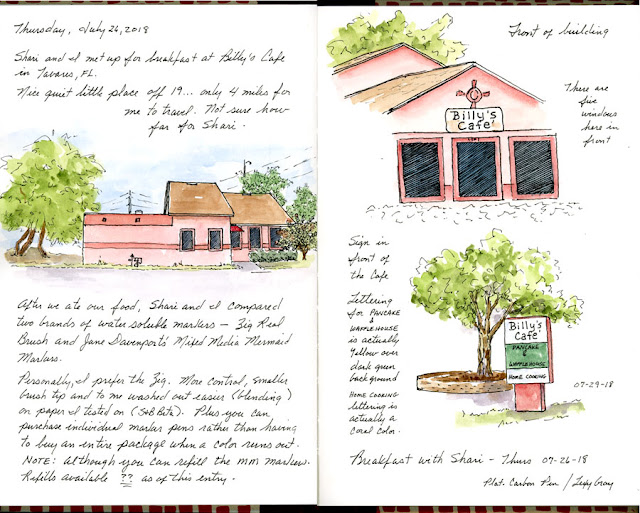 Thursday, July 26, 2018
Shari and I met up for breakfast at Billy's Cafe
in Tavares, FL.
Nice quiet little place off 19... only 4 miles for
me to travel. Not sure how
far for Shari.
After we ate our food, Shari and I compared
two brands of water soluble markers — Zig Real
Brush and Jane Davenport's Mixed Media Mermaid
Markers.
Personally, I prefer the Zig. More control, smaller
brush tip and to me washed out easier (blending)
on paper I tested on (S&B Beta). Plus you can
purchase individual marker pens rather than having
to buy an entire package when a color runs out.
NOTE: Although you can refill the MM markers.
Refills available ?? as of this entry.
Front of building
There are
five
windows
here in
front
Billy's
Cafe
Sign in
front of
the Cafe
Lettering
for PANCAKE
&
WAFFLE HOUSE
is actually
Yellow over
dark green
background
HOME COOKING
lettering is
actually a
coral color.
Billy's
Cafe
PANCAKE
&
WAFFLE HOUSE
HOME COOKING
07-29-18
Breakfast with Shari - Thurs 07-26-18
Plat. Carbon Pen / Gray